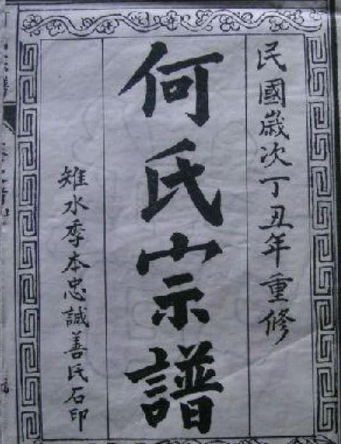 民國歲次丁丑年重修
何氏宗譜
雉水季本忠誠善民石印